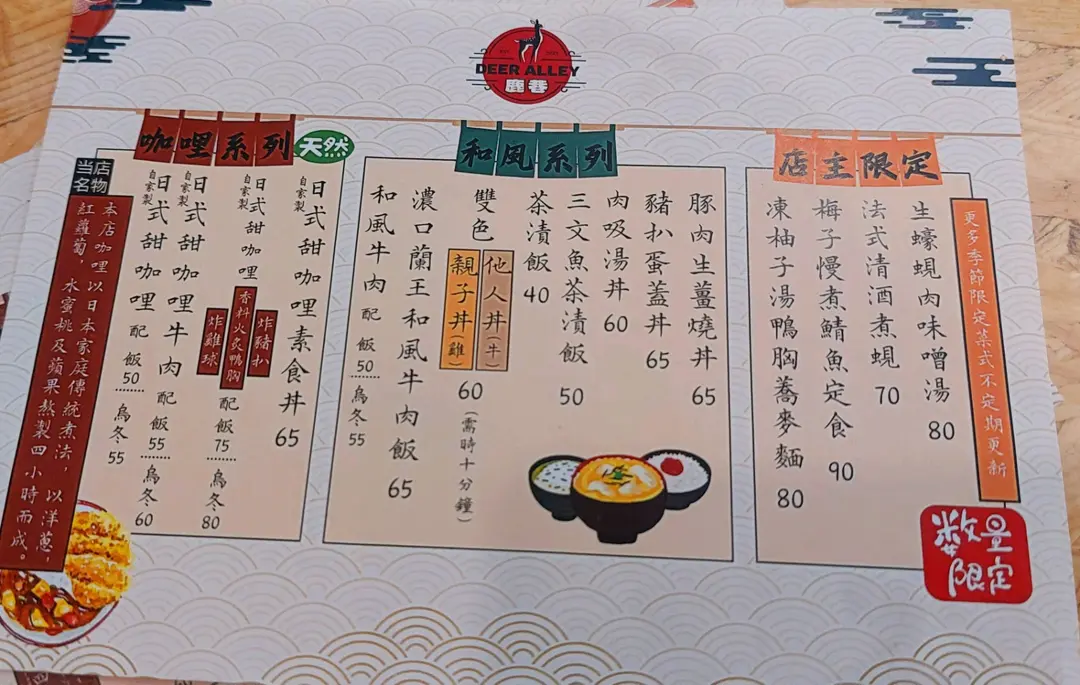 DEER ALLEY
鹿巷
咖哩系列
天然
当店
名物
本店咖哩以日本家庭傳統煮法，以洋蔥，
紅蘿蔔，水蜜桃及蘋果熬製四小時而成。
自家製日式甜咖哩素食丼 65
自家製日式甜咖哩
炸豬扒
香料火炙鴨胸
炸雞球
配 飯 75 烏冬 80
自家製日式甜咖哩牛肉 配 飯 55 烏冬 60
自家製日式甜咖哩 配 飯 50 烏冬 55
和風系列
豚肉生薑燒丼 65
豬扒蛋蓋丼 65
肉吸湯丼 60
三文魚茶漬飯 50
茶漬飯 40
雙色
他人丼（牛）
親子丼（雞）
60（需時十分鐘）
濃口蘭王和風牛肉飯 65
和風牛肉 配 飯 50 烏冬 55
店主限定
更多季節限定菜式不定期更新
生蠔蜆肉味噌湯 80
法式清酒煮蜆 70
梅子慢煮鯖魚定食 90
凍柚子湯鴨胸蕎麥麵 80
數量
限定